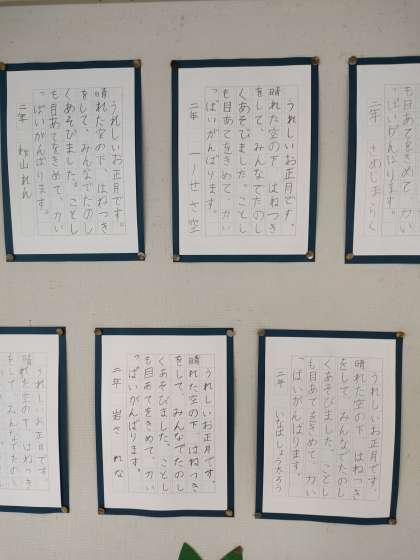 うれしいお正月です。
晴れた空の下、はねつき
をして、みんなでたのし
くあそびました。ことし
も目あてをきめて、力い
っぱいがんばります。
二年 山れん
うれしいお正月です。
晴れた空の下、はねつき
をして、みんなでたのし
くあそびました。ことし
も目あてをきめて、力い
っぱいがんばります。
二年 一ノせ さ空
も目あてをきめて、
っぱいがんばります。
二年 さめじまらく
うれしいお正月です。
晴れた空の下、はねつき
をして、みんなでたのし
うれしいお正月です。
晴れた空の下、はねつき
をして、みんなでたのし
くあそびました。ことし
も目あてをきめて、力い
っぱいがんばります。
二年 岩さ れな
うれしいお正月です。
晴れた空の下、はねつき
をして、みんなでたのし
くあそびました。ことし
も目あてをきめて、力い
っぱいがんばります。
二年 いなばしょうたろう